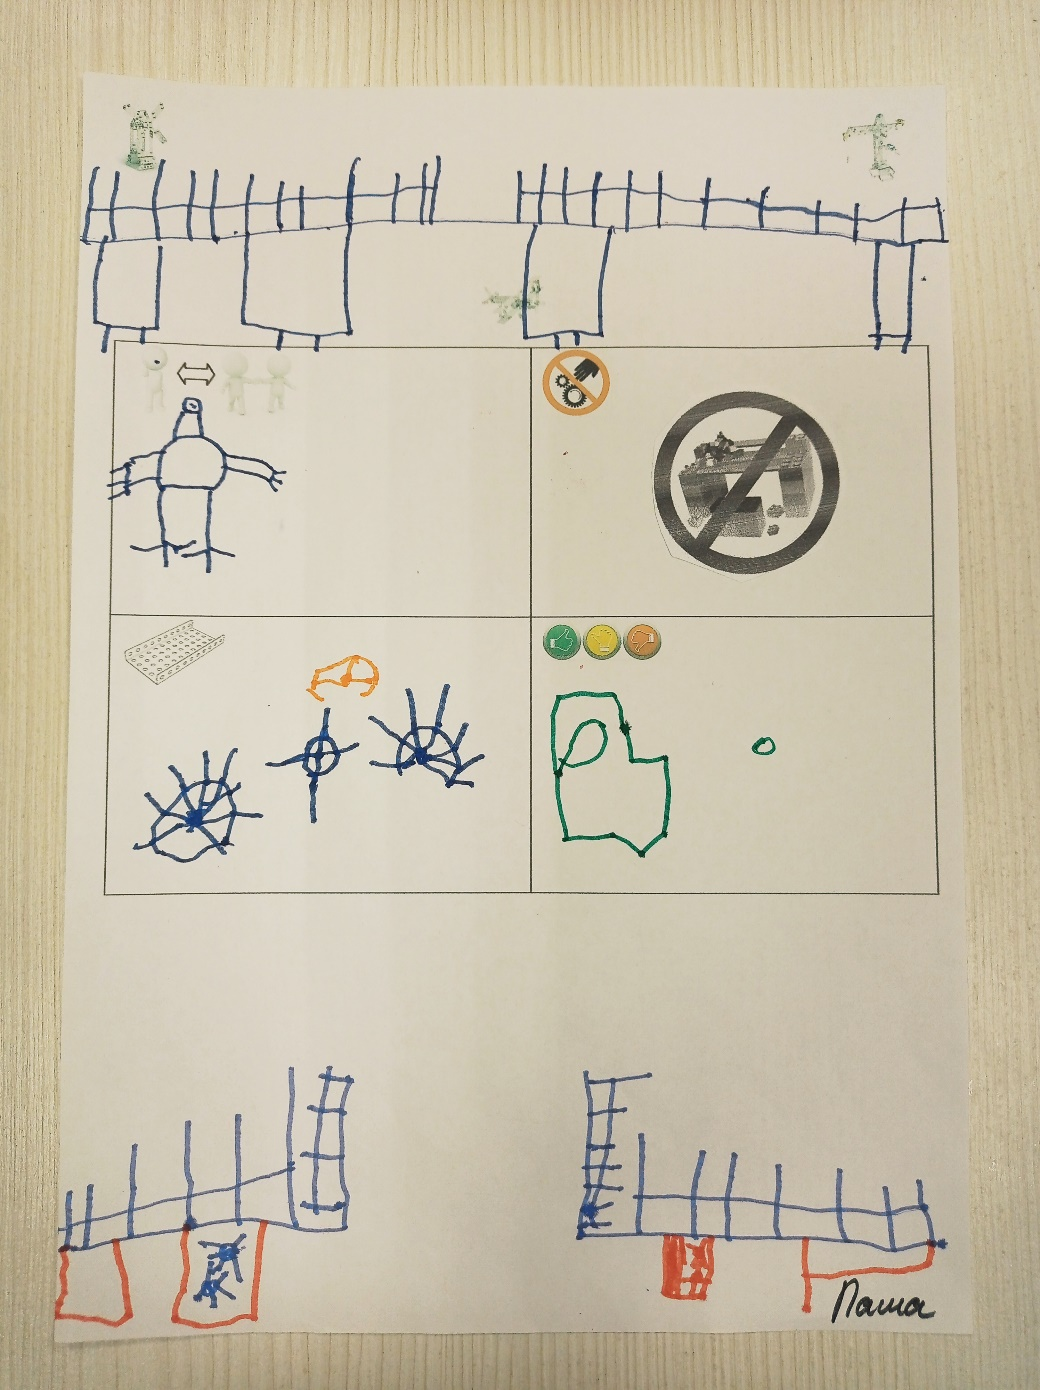 Паша